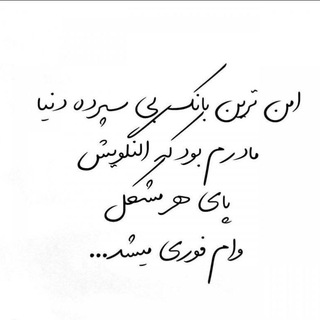 امن ترین بانک بی سپرده دنیا
مادرم بود که النگویش
پای هر مشکل
وام فوری میشد...